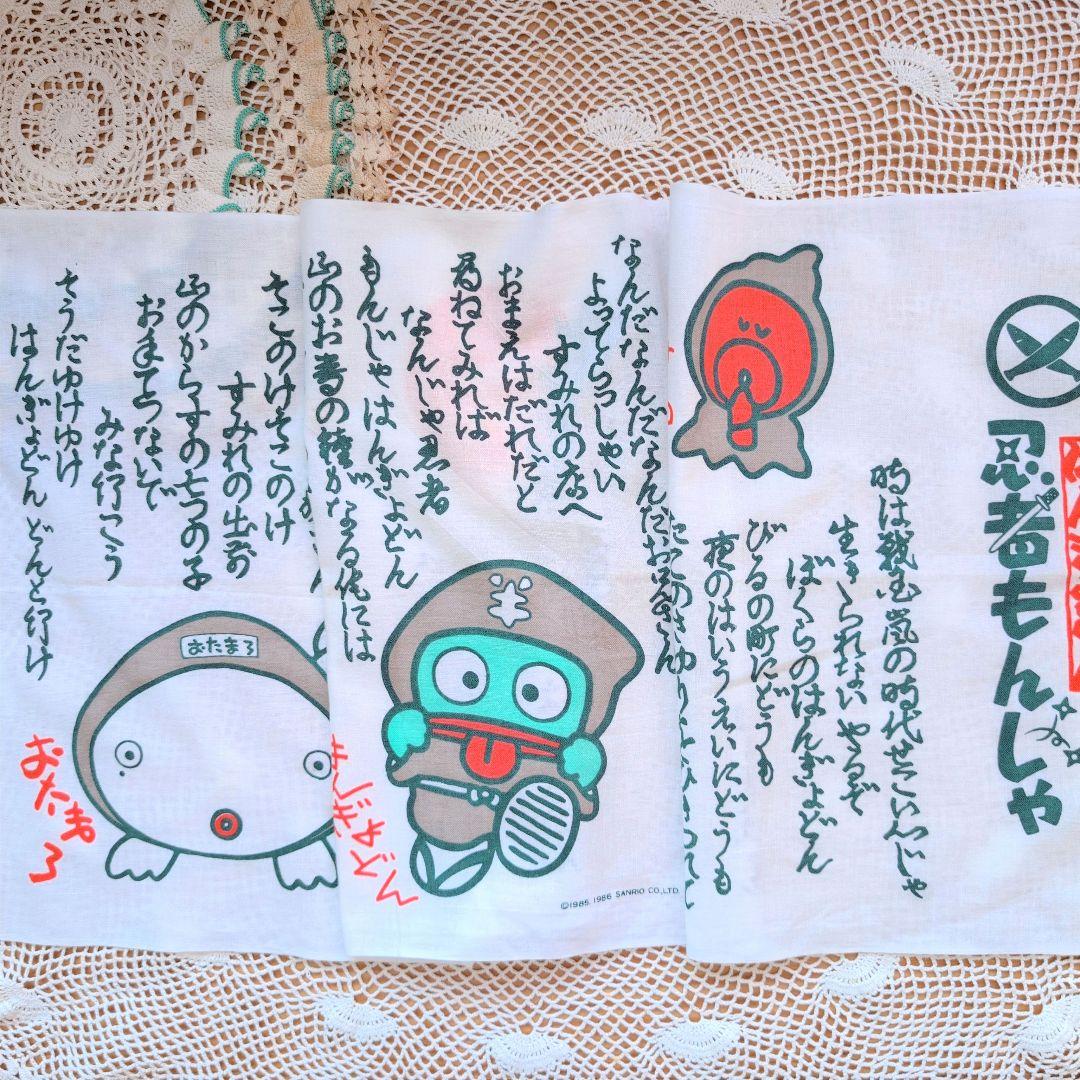 忍者もんじゃ
時は戦国嵐の時代せこい心じゃ
生きられないやるぞ
ぼくらのはんぎょどん
びるの町にどうも
夜のはいうぇいにどうも
なんだなんだなんだお兄さん
よってらっしゃい
すみれの店へ
おまえはだれだと
尋ねてみれば
なんじゃ忍者
もんじゃはんぎょどん
山のお寺の鐘がなる代には
そこのけそこのけ
すみれの出前
山のからすの七つの子
お手てつないで
みな行こう
そうだゆけゆけ
はんぎょどんどんと行け
おたまろ
おたまろ
©1985, 1986 SANRIO CO.,LTD.